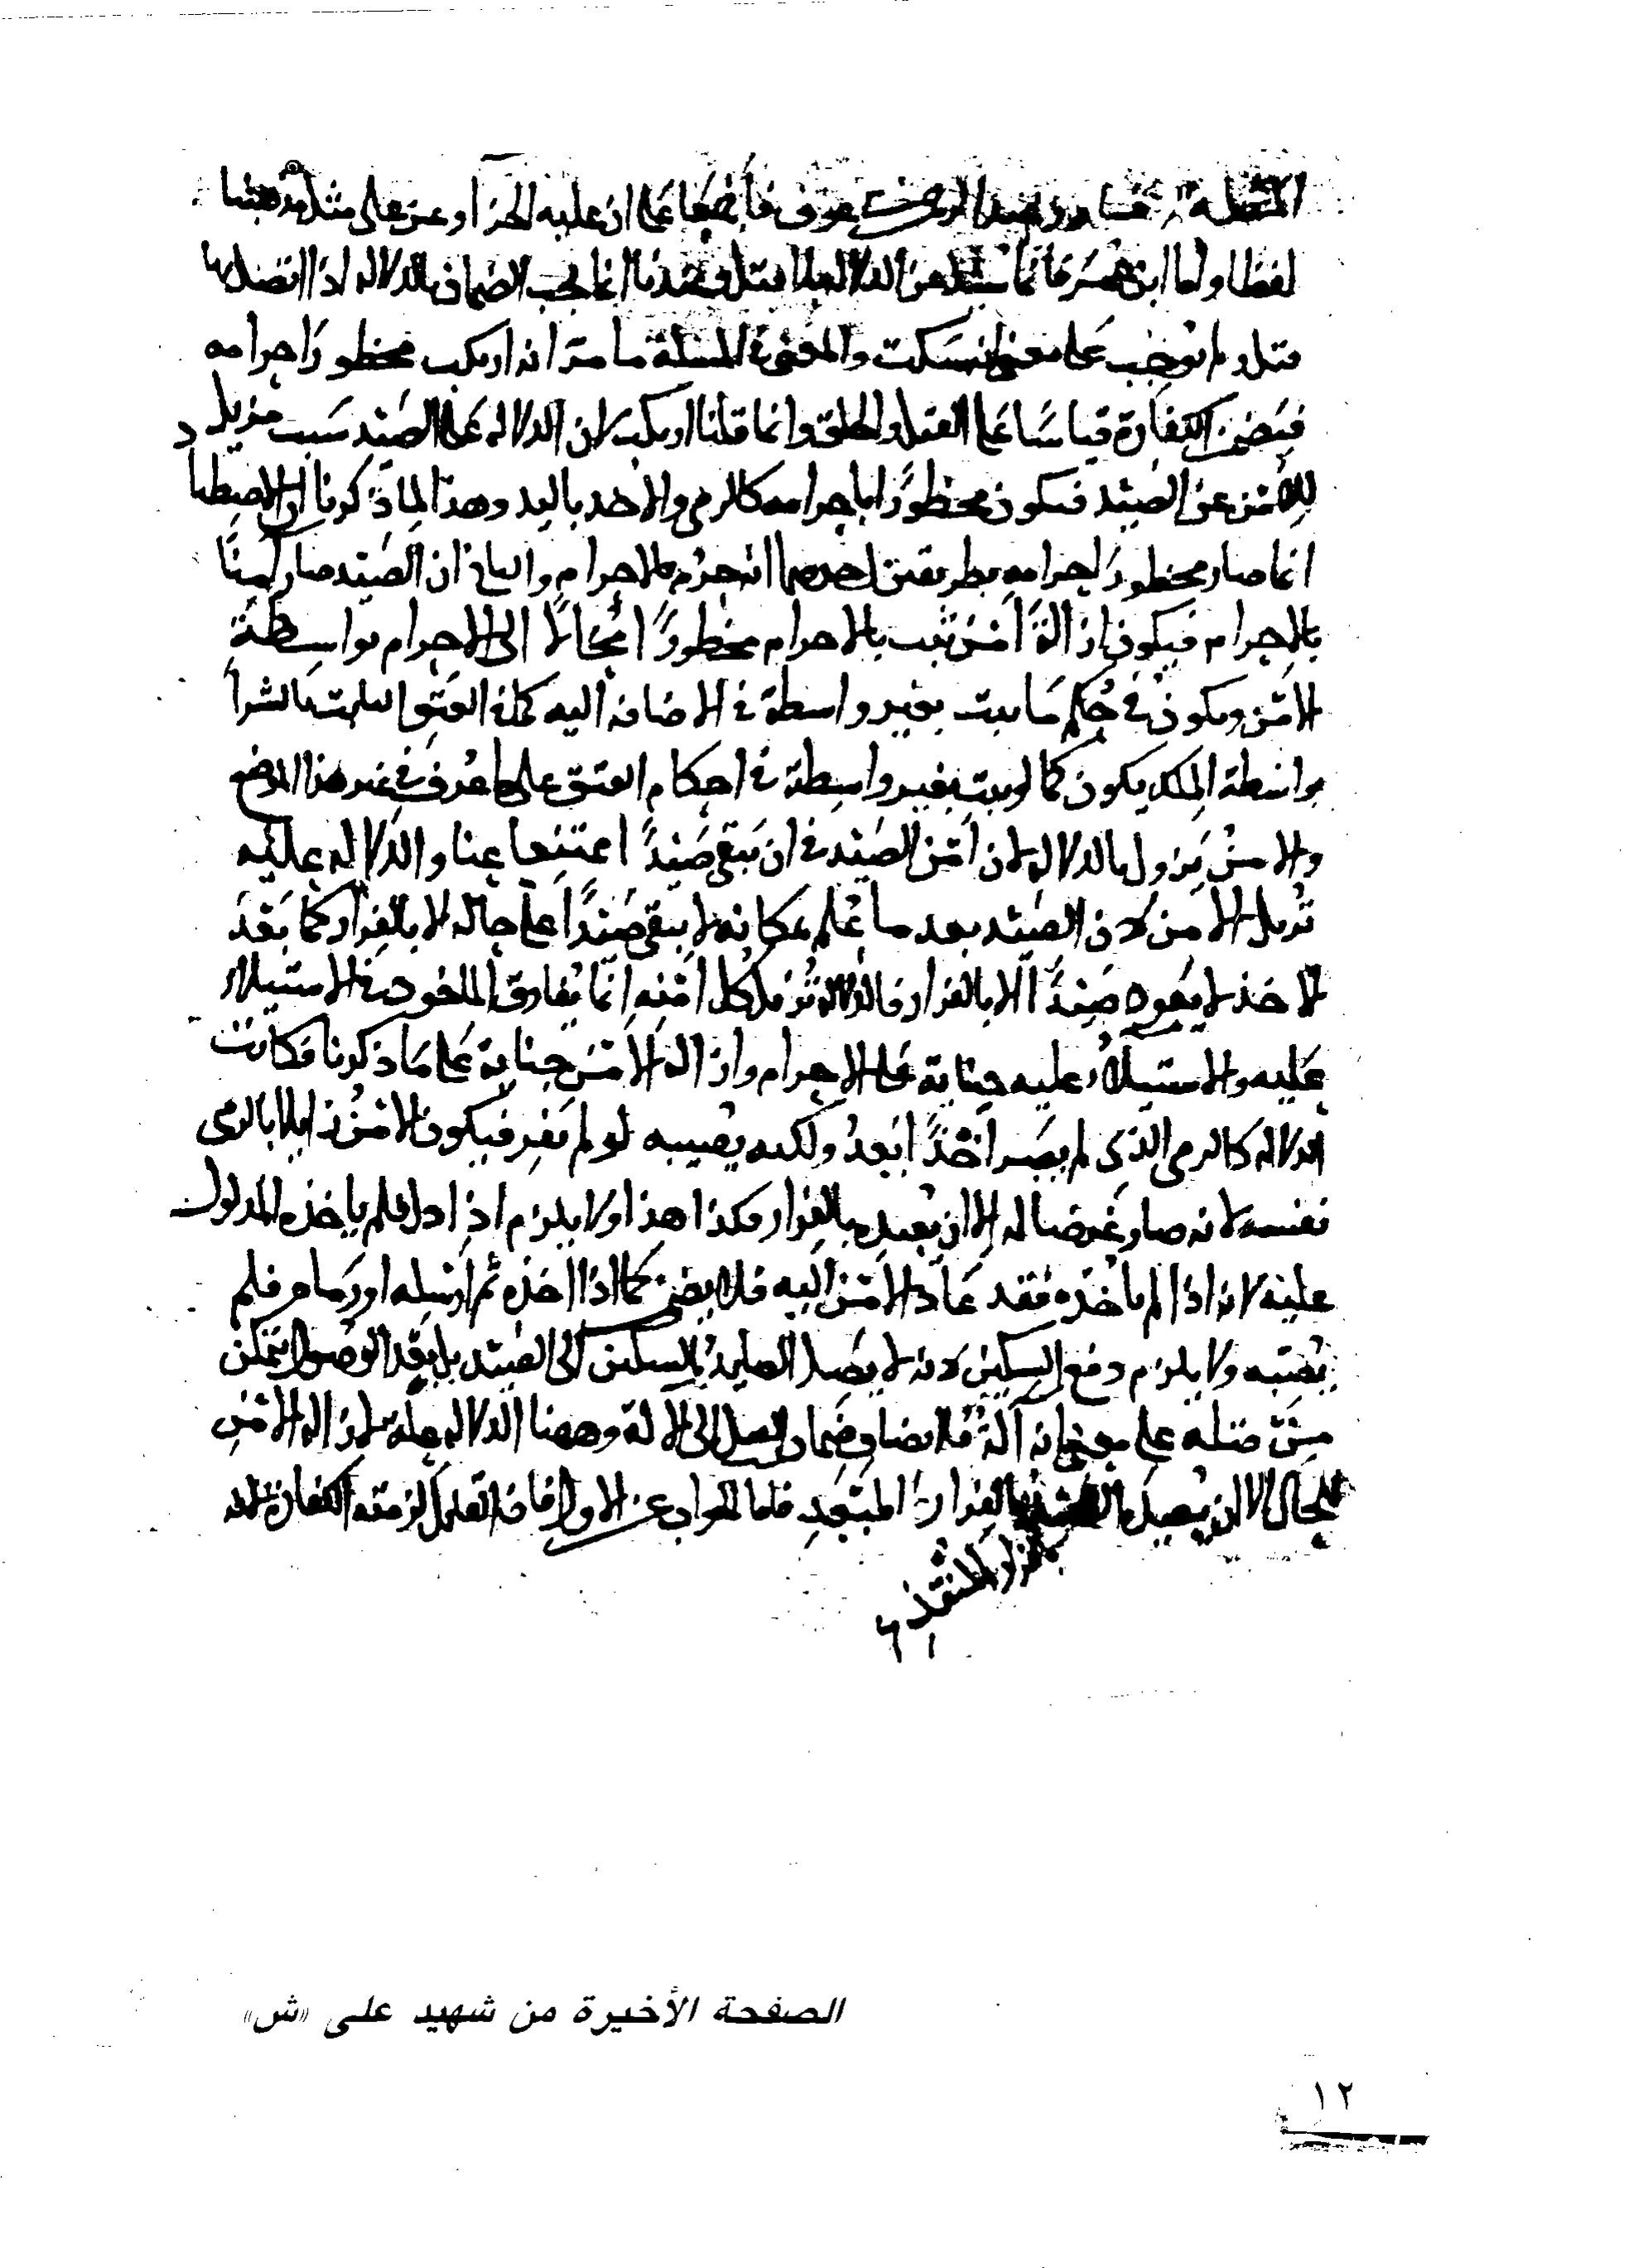 المسئلة عوف فأيضا على ان عليه الجزا وعن على مثل مذهبنا
لفظا واما ابن عمر فانما سئل عن الدلالة بلا قتل وعندنا انما يجب الضمان بالدلالة اذا اتصل بها
قتل ولم يوجب على معنى انه سكت والمعنى في المسئلة ما مر انه ارتكب محظور احرامه
فيضمن الكفارة قياسا على القتل والحلق وانما قلنا ارتكب لان الدلاله على الصيد سبب مزيل
للأمن عن الصيد فيكون محظورا باحرامه كالرمي والاخذ باليد وهذا لما ذكرنا ان الاصطياد
انما صار محظور احرامه بطريقين احدهما انه حرم بالاحرام والثاني ان الصيد صار امنا
بالاحرام فيكون ازالة امن ثبت بالاحرام محظورا محالا الى الاحرام بواسطة
الامن ويكون في حكم ما ثبت بغير واسطة في الاضافه اليه كما في العتق الثابت بالشرا
بواسطة الملك يكون كما لو ثبت بغير واسطة في احكام العتق على ما عرف في غير هذا الموضع
والامن يزول بالدلاله لان امن الصيد في ان يبقى صيدا ممتنعا عنا والدلاله عليه
تزيل الامن لان الصيد بعد ما علم بمكانه لا يبقى صيدا على حاله الا بالفرار كما بعد
الاخذ لا يعود صيدا الا بالفرار فالدلالة تزيل كل امنه انما يفارق الماخوذ في الاستيلاء
عليه والاستيلاء عليه جناية على الاحرام وازاله الامن جناية على ما ذكرنا فكانت
الدلاله كالرمي الذي لم يصر اخذا بعد ولكنه يصيبه لو لم يفر فيكون الامن زايلا بالرمي
نفسه لانه صار غرضا له الا ان يعيده بالفرار فكذا هذا ولا يلزم اذا دل فلم ياخذه المدلول
عليه لانه اذا لم ياخذه فقد عاد الامن اليه فلا يضمن كما اذا اخذه ثم ارسله او رماه فلم
يصبه ولا يلزم دفع السكين لانه لا يصل الصايد بالسكين الى الصيد بل بعد الوصول يتمكن
من قتله على معنى انه آلة فلا يضاف ضمان القتل الى الالة وههنا الدلاله علة لازاله الامن
للحال الا ان يعيد الصيد بالفرار المبتعد فاما الجواب عن الاول فان القتل لزمته الكفارة
الصفحة الأخيرة من شهيد على «ش»
١٢